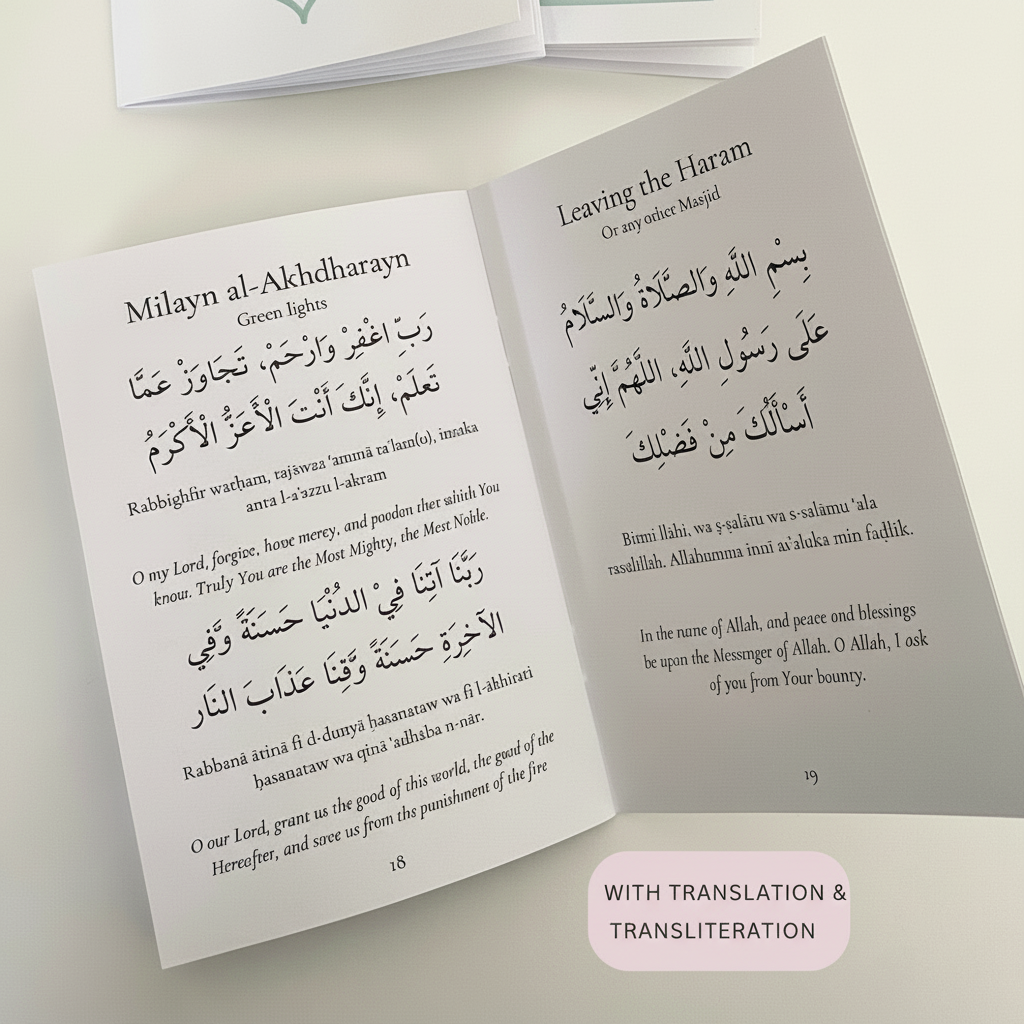 Milayn al-Akhdharayn
Green lights
رَبِّ اغْفِرْ وَارْحَمْ، تَجَاوَزْ عَمَّا
تَعلَمْ، إِنَّكَ أَنْتَ الْأَعَزُّ الْأَكْرَمُ
Rabbighfir warḥam, tajāwaa 'ammā ta'lam(u), innaka
anta l-a'azzu l-akram
O my Lord, forgive, hove mercy, and poodon ther whith You
know. Truly You are the Most Mighty, the Mest Noble.
رَبَّنَا آتِنَا فِيْ الدُنْيَا حَسَنَةً وَّفِي
الآخِرَةِ حَسَنَةً وَّقِنَا عَذَابَ النَار
Rabbanā ātinā fi d-dunyā ḥasanataw wa fi l-ākhirati
ḥasanataw wa qinā 'adhāba n-nār.
O our Lord, grant us the good of this world, the good of the
Hereofter, and sove us from ths punishment of the fire
18
Leaving the Haram
Or any other Masjid
بِسْمِ اللَّهِ وَالصَّلَاةُ وَالسَّلَامُ
عَلَى رَسُولِ اللَّهِ، اللَّهُمَّ إِنِّي
أَسْأَلُكَ مِنْ فَضْلِكَ
llāhi, wa ṣ-ṣalātu wa s-salāmu 'ala
Allāhumma innī as'aluka min faḍlik.
In the nane of Allah, and peace ond blessings
be upon the Messmger of Allah. O Allah, I ask
of you from Your bounty.
19
WITH TRANSLATION &
TRANSLITERATION